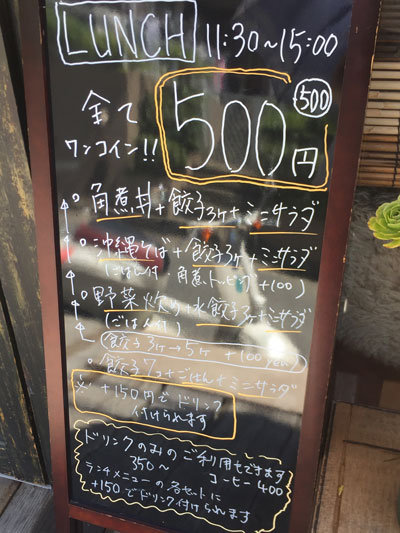 LUNCH 11:30~15:00
全て
ワンコイン!!
500円
500
角煮丼+餃子3ヶ+ミニサラダ
沖縄そば+餃子3ヶ+ミニサラダ
(ごはん付・角煮トッピング+100)
野菜炒め+水餃子3ヶ+ミニサラダ
(ごはん付)
餃子3ヶ→5ヶ +100yen
餃子7コ+ごはん+ミニサラダ
※ +150円でドリンク
付けられます
ドリンクのみのご利用もできます
350~ コーヒー400
ランチメニューの各セットに
+150でドリンク付けられます